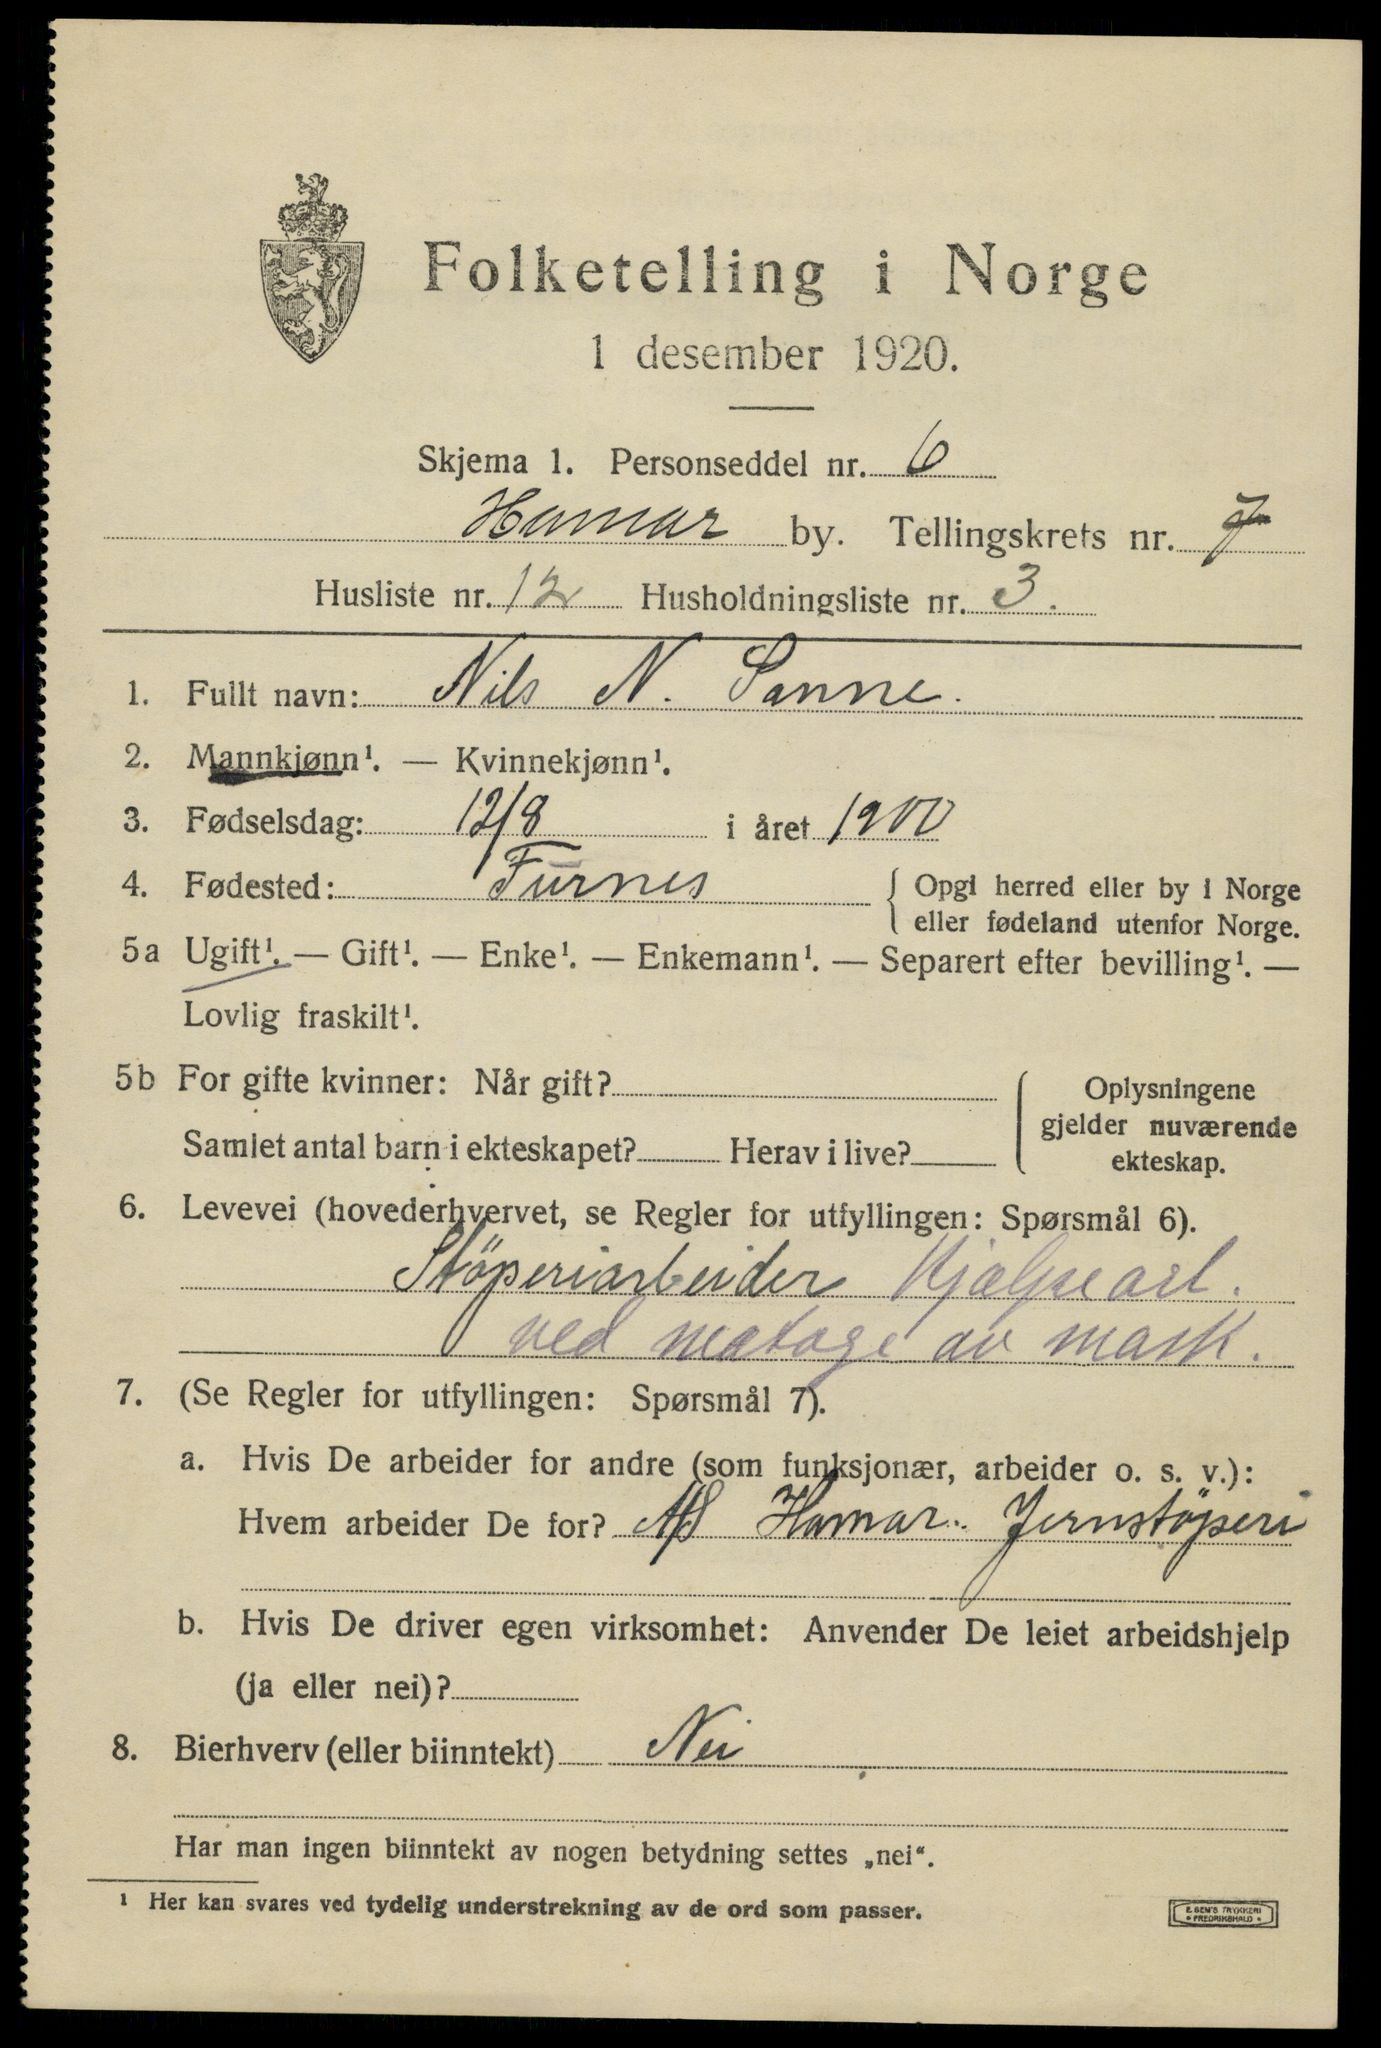 Folketelling i Norge
1 desember 1920.
Skjema 1. Personseddel nr. 6
Hamar by. Tellingskrets nr. 7
Husliste nr. 12 Husholdningsliste nr. 3.
1. Fullt navn: Nils N. Sanne.
2. Mannkjønn¹. — Kvinnekjønn¹.
3. Fødselsdag: 12/8 i året 1900
4. Fødested: Furnes { Opgi herred eller by i Norge
eller fødeland utenfor Norge.
5a Ugift¹. — Gift¹. — Enke¹. — Enkemann¹. — Separert efter bevilling¹. —
Lovlig fraskilt¹.
5b For gifte kvinner: Når gift?
Samlet antal barn i ekteskapet? Herav i live?
Oplysningene
gjelder nuværende
ekteskap.
6. Levevei (hovederhvervet, se Regler for utfyllingen: Spørsmål 6).
Støperiarbeider Hjælpearb.
ved av mask.
7. (Se Regler for utfyllingen: Spørsmål 7).
a. Hvis De arbeider for andre (som funksjonær, arbeider o. s. v.):
Hvem arbeider De for? A/S Hamar. Jernstöperi
b. Hvis De driver egen virksomhet: Anvender De leiet arbeidshjelp
(ja eller nei)?
8. Bierhverv (eller biinntekt) Nei
Har man ingen biinntekt av nogen betydning settes „nei“.
¹ Her kan svares ved tydelig understrekning av de ord som passer.
E. SEM'S TRYKKERI
FREDRIKSHALD